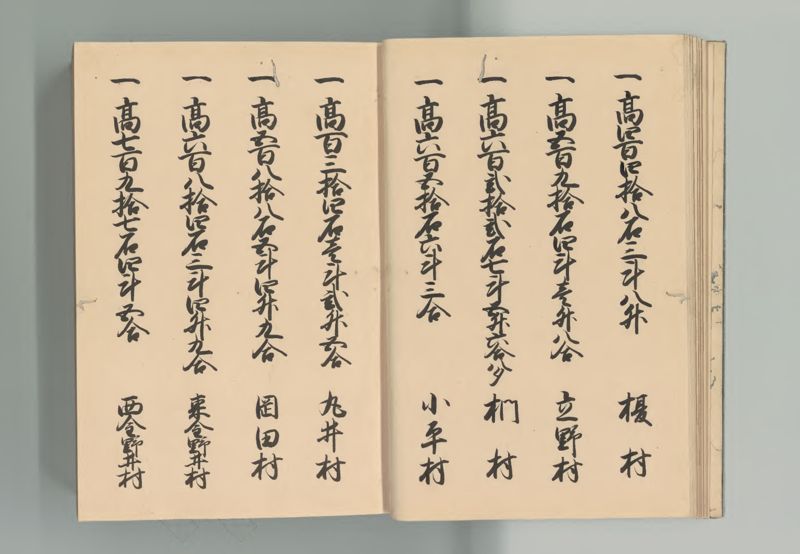 一高四百四拾八石三斗八升 榎村
一高五百九拾石四斗壱升八合 立野村
一高六百弐拾弐石七斗五升六合八夕 椚村
一高六百五拾石六斗三合 小平村
一高百三拾四石壱斗弐升五合 丸井村
一高五百八拾八石五斗四升九合 岡田村
一高六百八拾四石三斗四升九合 東全野井村
一高七百九拾七石四斗五合 西全野井村